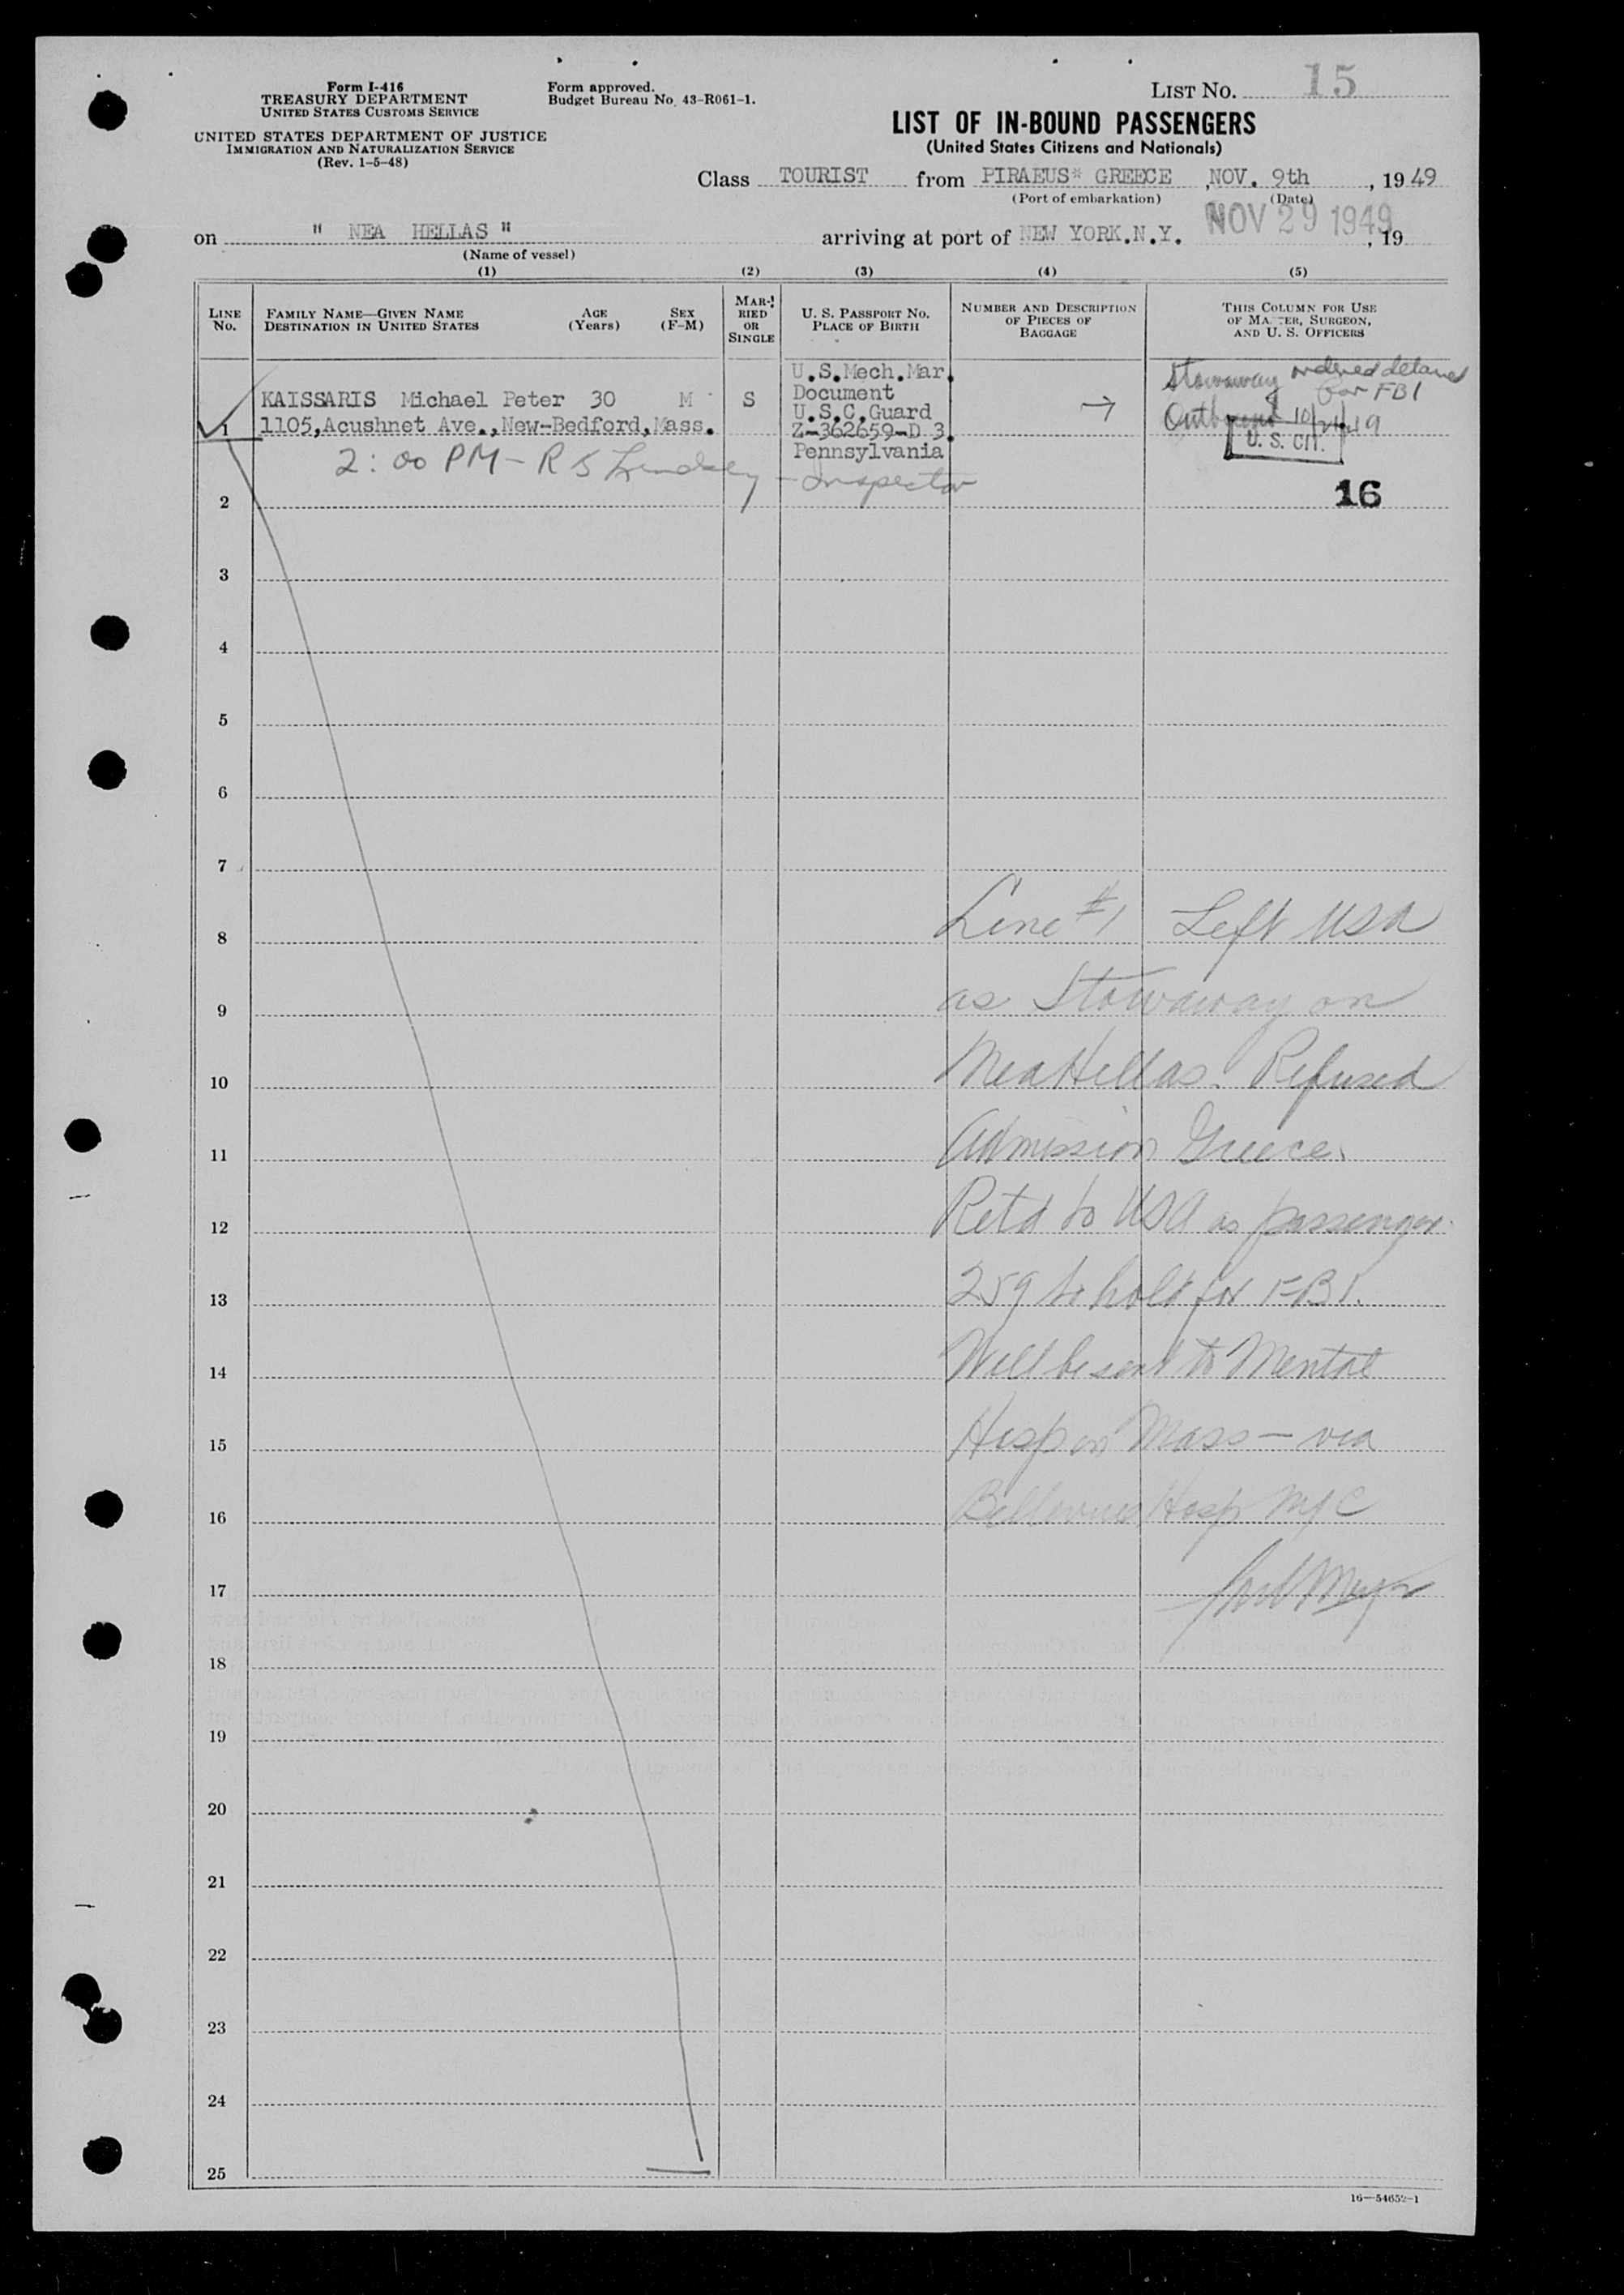 Form I-416
TREASURY DEPARTMENT
UNITED STATES CUSTOMS SERVICE
UNITED STATES DEPARTMENT OF JUSTICE
IMMIGRATION AND NATURALIZATION SERVICE
(Rev. 1-5-48)
Form approved.
Budget Bureau No. 43-R061-1.
LIST NO. 15
LIST OF IN-BOUND PASSENGERS
(United States Citizens and Nationals)
Class TOURIST from PIRAEUS* GREECE ,NOV. 9th , 1949
(Port of embarkation) (Date)
on " NEA HELLAS " arriving at port of NEW YORK.N.Y. NOV 29 1949 , 19
(Name of vessel)
(1) (2) (3) (4) (5)
LINE NO.
FAMILY NAME—GIVEN NAME AGE SEX
DESTINATION IN UNITED STATES (Years) (F-M)
MARRIED OR SINGLE
U. S. PASSPORT NO.
PLACE OF BIRTH
NUMBER AND DESCRIPTION
OF PIECES OF
BAGGAGE
THIS COLUMN FOR USE
OF MASTER, SURGEON,
AND U. S. OFFICERS
1
KAISSARIS Michael Peter 30 M S
1105,Acushnet Ave.,New-Bedford,Mass.
U.S.Mech.Mar.
Document
U.S.C.Guard
Z-362659-D 3.
Pennsylvania
→
Stowaway ordered detained
for FBI
Outbound 10/21/49
U. S. CIT.
2:00 PM - R S Lindsey - Inspector
16
2
3
4
5
6
7
8 Line #1 Left USA
9 as Stowaway on
10 Nea Hellas. Refused
11 Admission Greece.
12 Retd to USA as passenger.
13 259 to hold for FBI.
14 Will be sent to Mental
15 Hosp in Mass — via
16 Bellevue Hosp NYC
17
18
19
20
21
22
23
24
25
16—54652-1